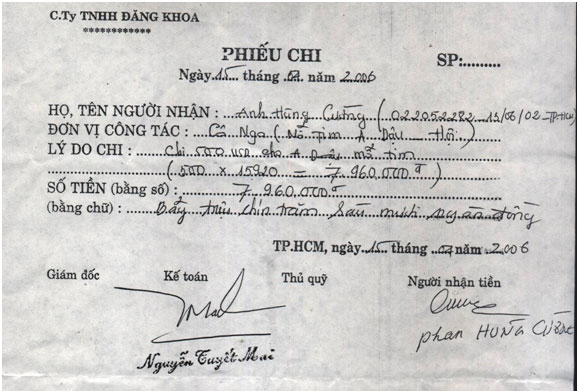 C.Ty TNHH ĐĂNG KHOA
************
PHIẾU CHI
SP:.........
Ngày 15 tháng 07 năm 2006
HỌ, TÊN NGƯỜI NHẬN : Anh Hùng Cường ( 022052282 15/06/02 - TP-HCM)
ĐƠN VỊ CÔNG TÁC : Cô Nga ( Mổ Tim A Dậu - Hội )
LÝ DO CHI : Chi 500 USD cho A Dậu mổ tim
( 500 x 15920 = 7.960.000đ )
SỐ TIỀN (bằng số) : 7.960.000đ
(bằng chữ) : Bảy triệu chín trăm Sáu mươi ngàn đồng
TP.HCM, ngày 15 tháng 07 năm 2006
Giám đốc Kế toán Thủ quỹ Người nhận tiền
Nguyễn Tuyết Mai
phan HÙNG CƯỜNG